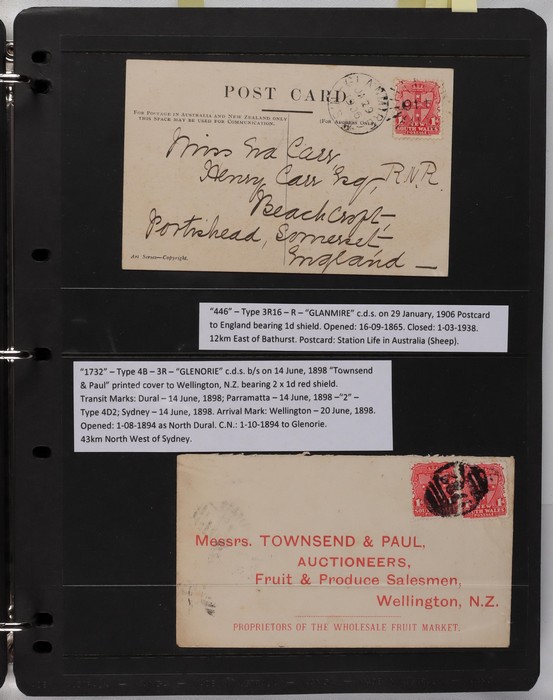 POST CARD
FOR POSTAGE IN AUSTRALIA AND NEW ZEALAND ONLY
THIS SPACE MAY BE USED FOR COMMUNICATION.
(For Address Only.)
GLANMIRE
JA 29
SOUTH WALES
Miss Eva Carr
Henry Carr Esq, R.N.R.
Beachcroft,
Portishead, Somerset
England —
Art Series—Copyright.
"446" – Type 3R16 – R – "GLANMIRE" c.d.s. on 29 January, 1906 Postcard
to England bearing 1d shield. Opened: 16-09-1865. Closed: 1-03-1938.
12km East of Bathurst. Postcard: Station Life in Australia (Sheep).
"1732" – Type 4B - 3R – "GLENORIE" c.d.s. b/s on 14 June, 1898 "Townsend
& Paul" printed cover to Wellington, N.Z. bearing 2 x 1d red shield.
Transit Marks: Dural – 14 June, 1898; Parramatta – 14 June, 1898 –"2" –
Type 4D2; Sydney – 14 June, 1898. Arrival Mark: Wellington – 20 June, 1898.
Opened: 1-08-1894 as North Dural. C.N.: 1-10-1894 to Glenorie.
43km North West of Sydney.
Messrs. TOWNSEND & PAUL,
AUCTIONEERS,
Fruit & Produce Salesmen,
Wellington, N.Z.
PROPRIETORS OF THE WHOLESALE FRUIT MARKET.